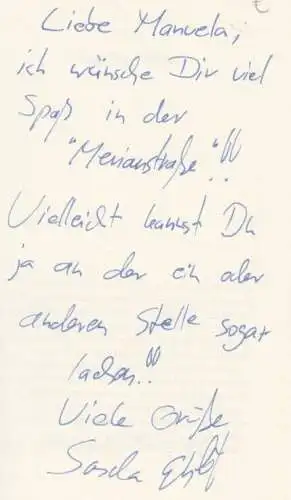 Liebe Manuela,
ich wünsche Dir viel
Spaß in der
"Merianstraße"!!
Vielleicht kannst Du
ja an der ein oder
anderen Stelle sogar
lachen!!
Viele Grüße
Sascha